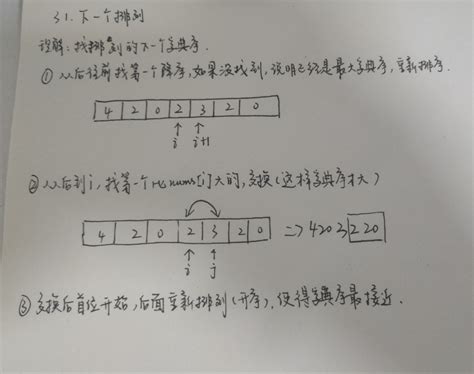 31.下一个排列
误解:找排列的下一个字典序.
①从后往前找第一个降序,如果没找到,说明已经是最大字典序,重新排序.
4 2 0 2 3 2 0
i i+1
②从后到i,找第一个比nums[i]大的,交换(这样字典序才大)
4 2 0 2 3 2 0 => 4203220
i j
③交换后首位开始,后面重新排列(升序),使得字典序最接近.